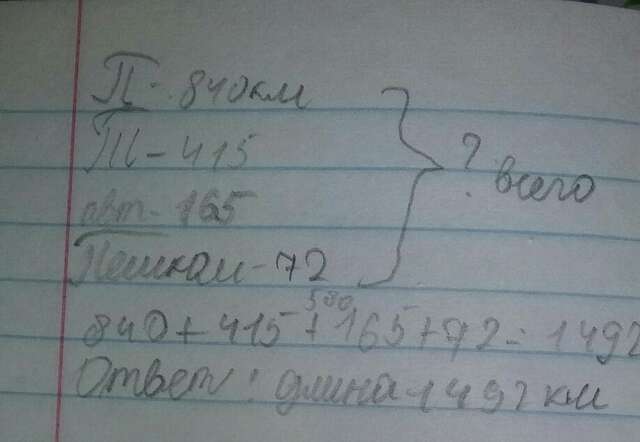 П - 840км
Т - 415
авт - 165
Пешком - 72
? всего
580
840 + 415 + 165 + 72 = 1492
Ответ: длина 1492 км